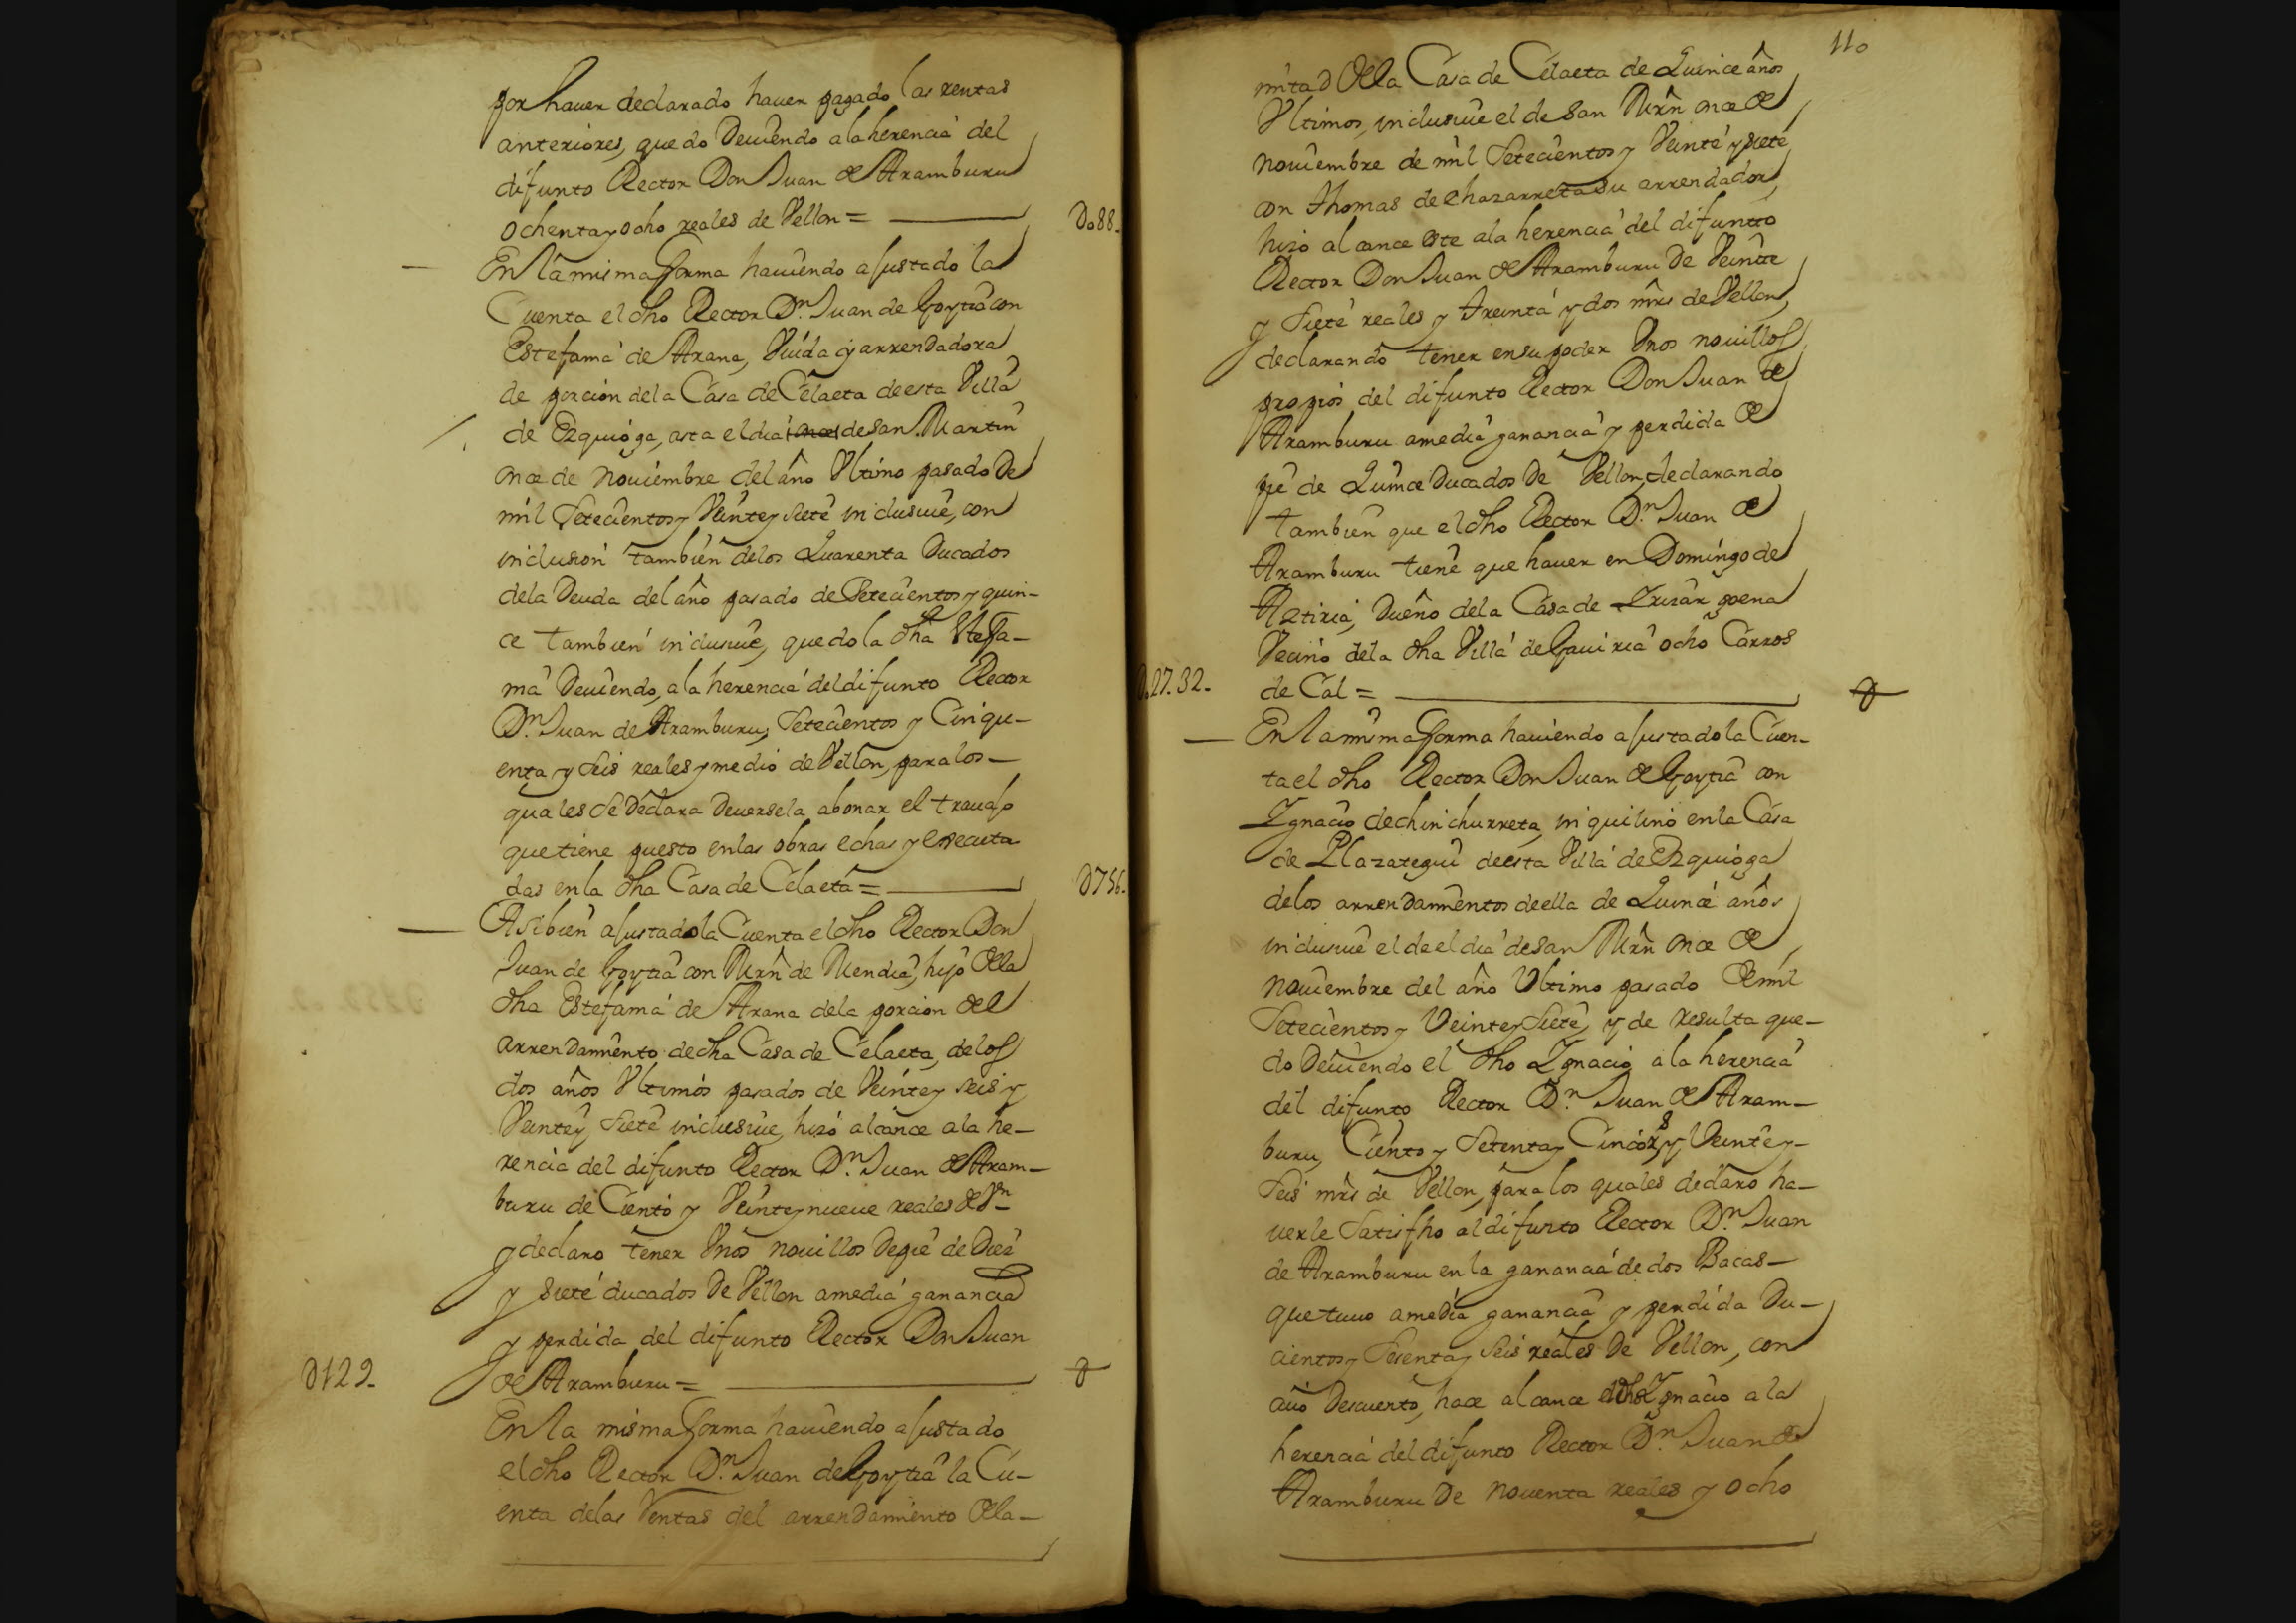 por hauer declarado hauer pagado las rentas
anteriores, quedo Deuiendo ala herencia del
difunto Rector Don Juan de Aramburu
ochenta y ocho reales de Vellon =
Do88.
En la misma forma hauiendo ajustado la
Cuenta el dho Rector Dn. Juan de Goytia con
Estefania de Arana, Viuda y arrendadora
de porcion dela Casa de Celaeta de esta Villa
de Ezquioga, asta el dia de San Martin
once de Nouiembre del año Vltimo pasado De
mil Setecientos y Veinte y siete inclusiue, con
inclusion tambien delos Quarenta Ducados
dela Deuda del año pasado de Setecientos y quin-
ce tambien inclusiue, quedo la dha Estefa-
nia Deuiendo, ala herencia del difunto Rector
Dn. Juan de Aramburu, Setecientos y Cinqu-
enta y Seis reales y medio de Vellon, para los-
quales Se Declara Deuersela abonar el trauajo
que tiene puesto en las obras echas y executa
das en la dha Casa de Celaeta =
D756.
Asi bien ajustado la Cuenta el dho Rector Don
Juan de Goytia con Mrn de Mendia, hijo dela
dha Estefania de Arana dela porcion del
arrendamiento de dha Casa de Celaeta, delos
dos años Vltimos pasados de Veinte y seis y
Veinte y Siete inclusiue, hizo alcance ala he-
rencia del difunto Rector Dn. Juan de Aram-
buru de Ciento y Veinte y nueue reales de Vn
y declaro tener Vnos nouillos De pie de Diez
y siete ducados De Vellon a media ganancia
y perdida del difunto Rector Don Juan
D129.
de Aramburu =
En la misma forma hauiendo ajustado
el dho Rector Dn. Juan de Goytia la Cu-
enta delas Ventas del arrendamiento dela-
110
mitad dela Casa de Celaeta de Quince años
Vltimos, inclusiue el de San Mrn once de
nouiembre de mil Setecientos y Veinte y siete
con Thomas de chazarreta su arrendador,
hizo alcance este ala herencia del difunto
Rector Don Juan de Aramburu De Veinte
y Siete reales y Treinta y dos mrs de Vellon,
declarando tener en su poder Vnos nouillos
propios del difunto Rector Don Juan de
Aramburu a media ganancia y perdida de
pie de Quince Ducados De Vellon, declarando
tambien que el dho Rector Dn. Juan de
Aramburu tiene que hauer en Domingo de
Aztiria, Dueño dela Casa de Yrizar goena
Vecino dela dha Villa de Gauiria ocho Carros
Do27.32.
de Cal =
En la misma forma hauiendo ajustado la Cuen-
ta el dho Rector Don Juan de Goytia con
Ygnacio de chinchurreta, inquilino en la Casa
de Plazategui de esta Villa de Ezquioga
delos arrendamientos de ella de Quince años
inclusiue el de el dia de San Mrn once de
nouiembre del año Vltimo pasado de mil
Setecientos y Veinte y Siete, y de resulta que-
do Deuiendo el dho Ygnacio ala herencia
del difunto Rector Dn. Juan de Aram-
buru, Ciento y Setenta y Cinco rs y Veinte y-
Seis mrs de Vellon, para los quales declaro ha-
uerle Satisfho al difunto Rector Dn. Juan
de Aramburu en la ganancia de dos Bacas-
que tuuo a media ganancia y perdida Du-
cientos y Sesenta y Seis reales De Vellon, con
cuio Descuento, hace alcance el dho Ygnacio ala
herencia del difunto Rector Dn. Juan de
Aramburu De nouenta reales y ocho